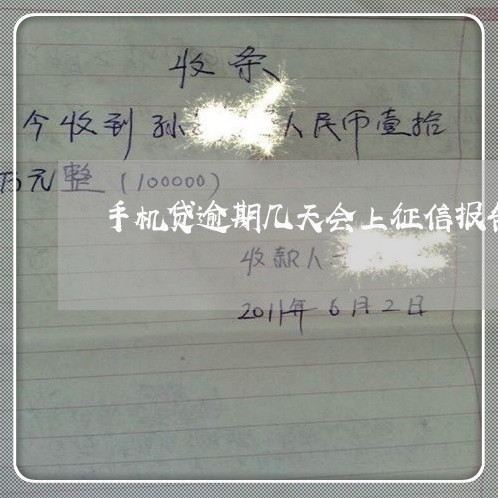 收条
今收到孙 人民币壹拾
万元整（100000）
手机贷逾期几天会上征信报告
收款人
2011年6月2日